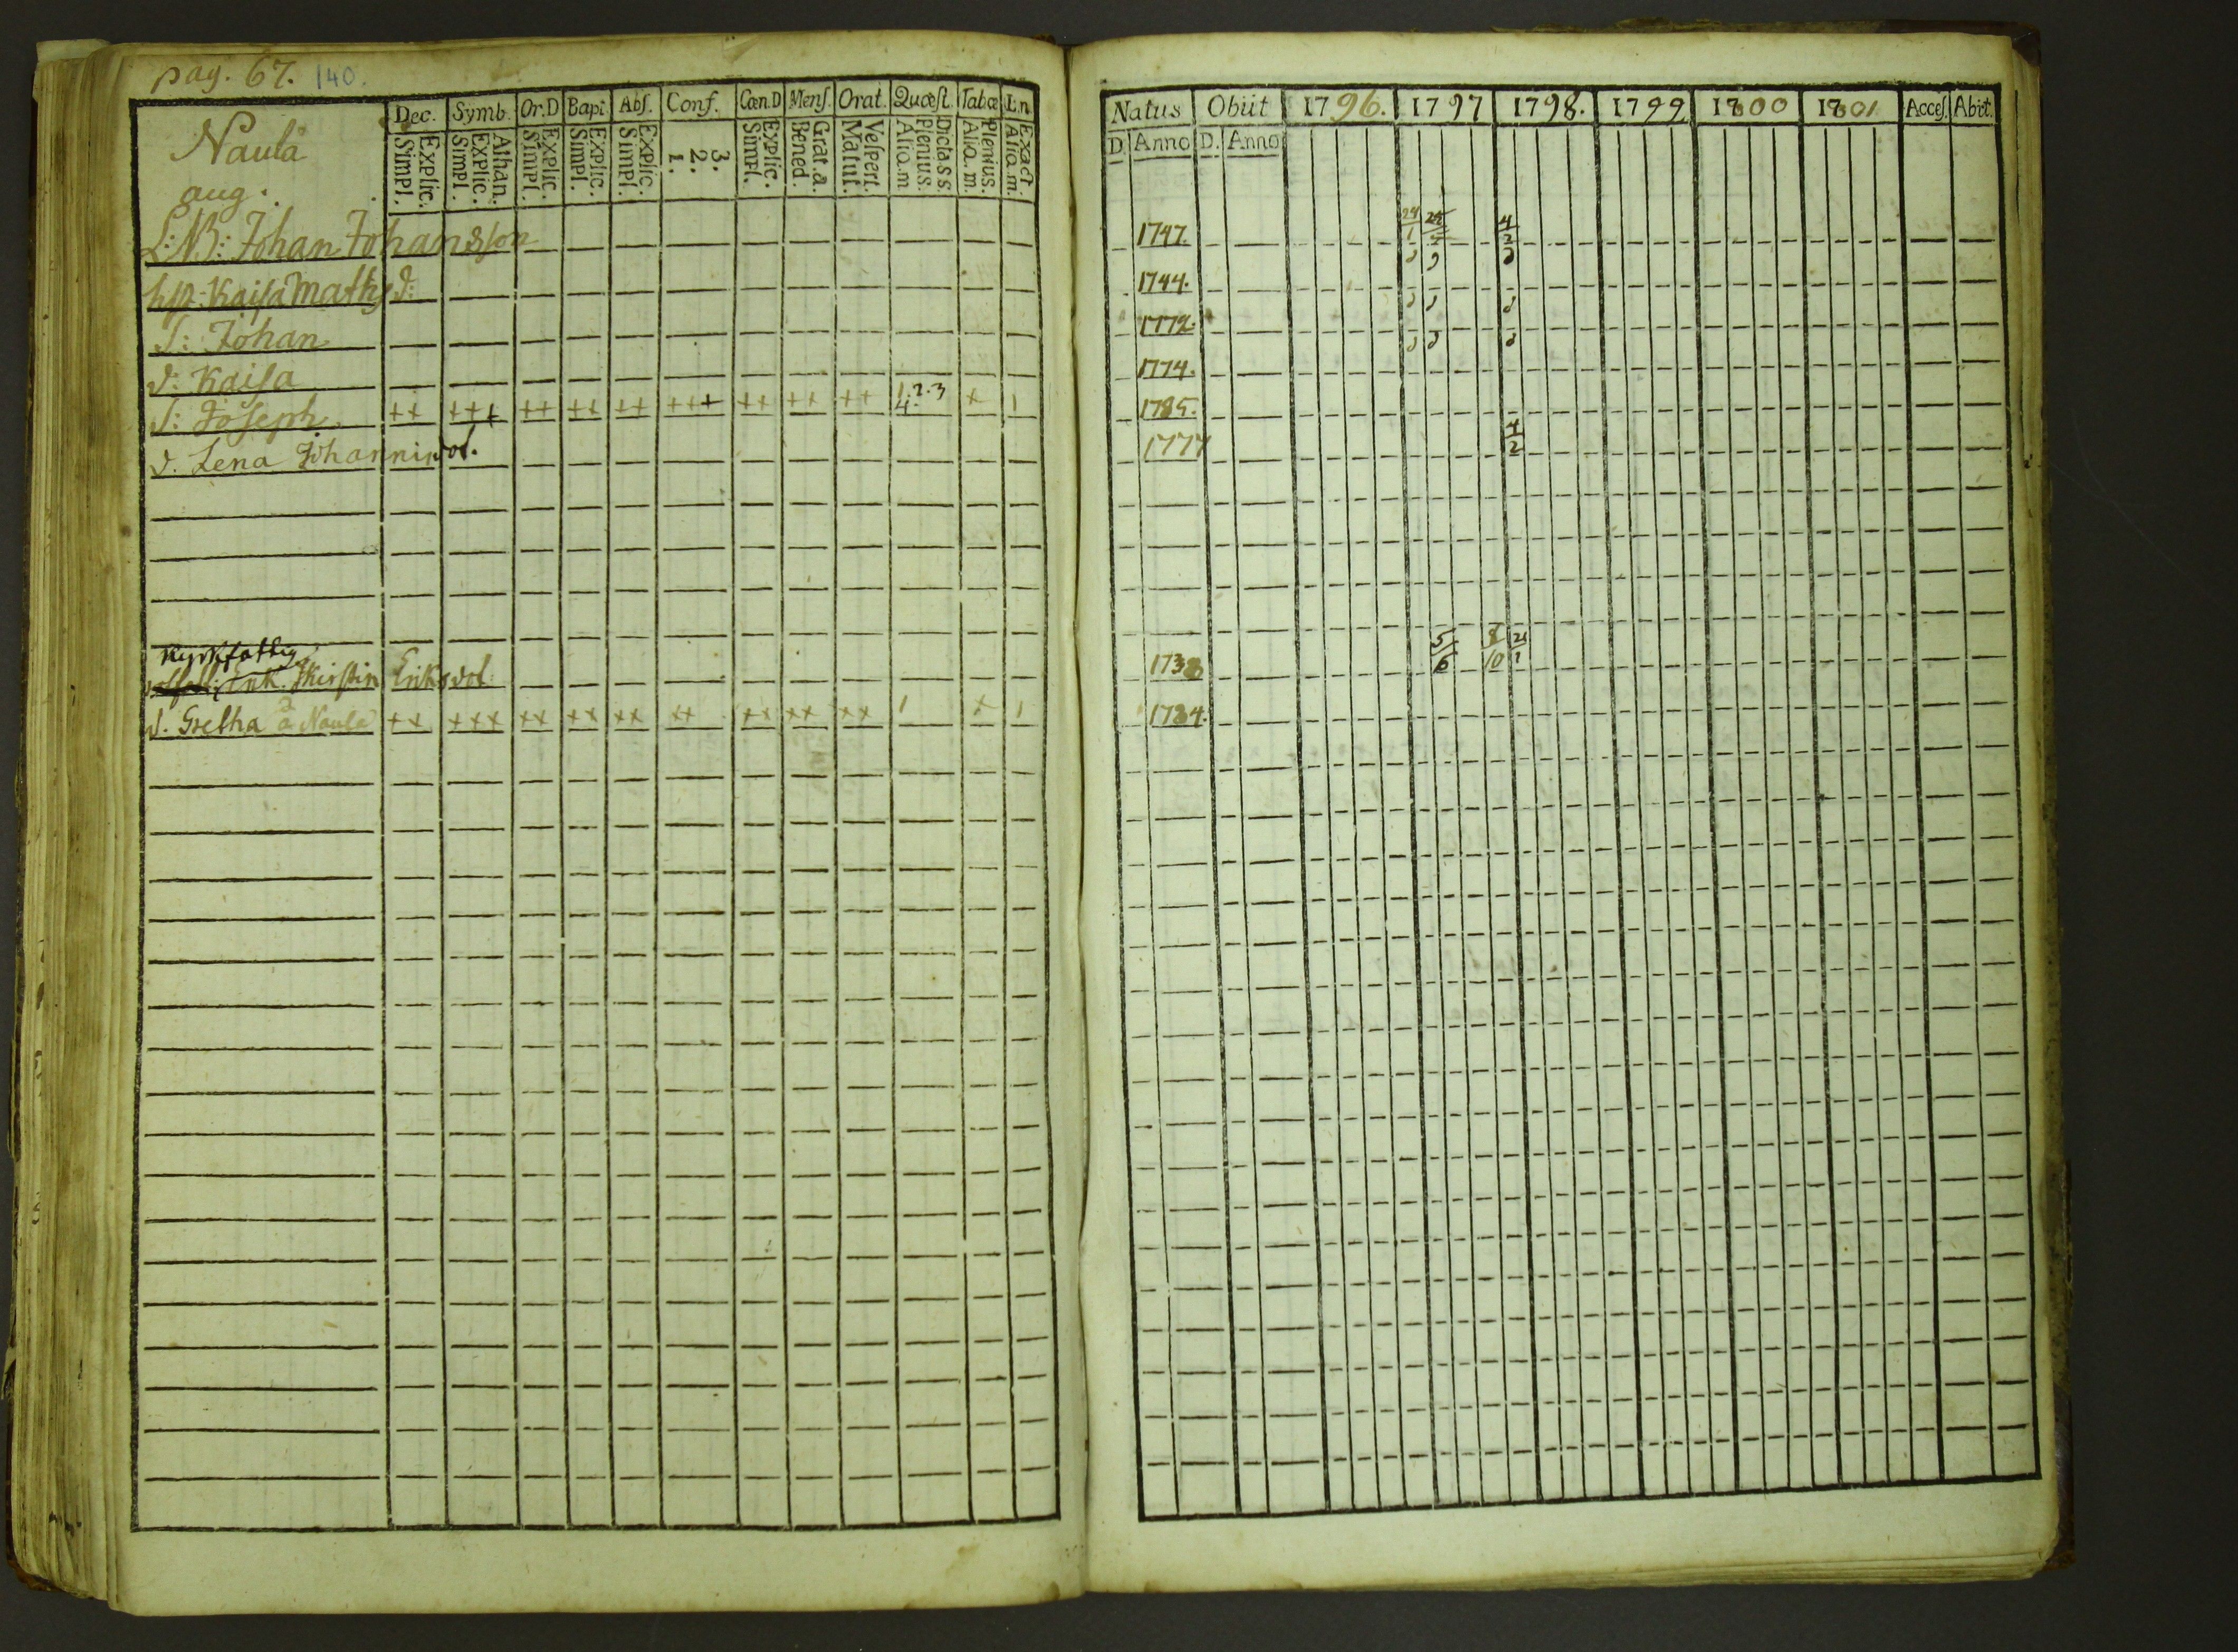 pag. 67. 140.
Dec. Symb. Or.D Bapt Abſ. Conf. Cœn.D Menſ. Orat. Quæſt. Tabœ Lin
Explic. Simpl. Athan. Explic. Simpl. Explic. Simpl. Explic. Simpl. Explic. Simpl. 3. 2. 1. Explic. Simpl. Grat.a. Bened. Veſpert. Matut. Dicta s s. Plenius. Aliq.m. Plenius. Aliq.m. Exact. Aliq.m.
Naula
aug.
L:B: Johan Johansson
hſt: Kaiſa Maths d:
S: Johan
d: Kaiſa
S: Joſeph ++ +++ ++ ++ ++ +++ ++ ++ ++ 1.2.3 4. + 1
d. Lena Johannisdot.
Kyrkfattig
Enk. Kirstin Eriksdot
d. Gretha a Naula ++ +++ ++ ++ ++ ++ ++ ++ ++ 1 + 1
Natus Obiit 1796. 1797 1798. 1799 1800 1801 Acceſ. Abiit.
D. Anno D. Anno
1747. 24/1 4/2
1744.
1772.
1774.
1785.
1777 4/2
1738 5/6 8/10 21/1
1784.